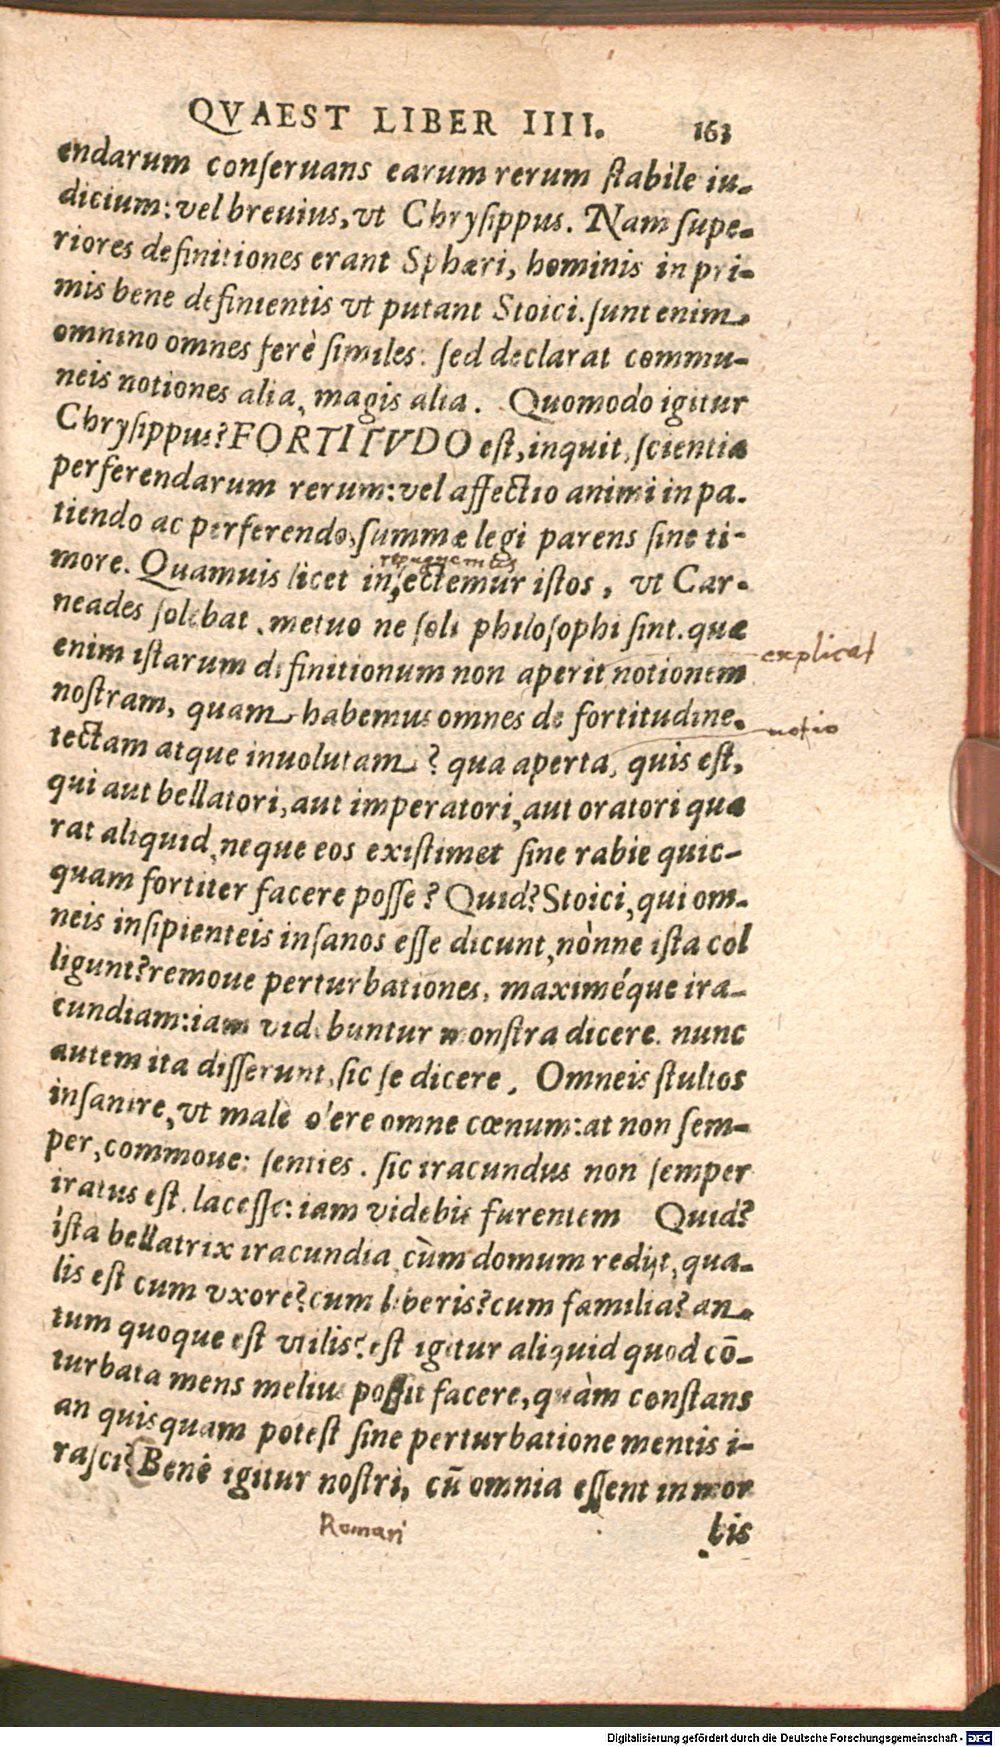 QVAEST LIBER IIII. 163
endarum conſeruans earum rerum ſtabile iu-
dicium: vel breuius, vt Chryſippus. Nam ſupe-
riores definitiones erant Sphæri, hominis in pri-
mis bene definientis vt putant Stoici. ſunt enim
omnino omnes ferè ſimiles: ſed declarat commu-
neis notiones alia, magis alia. Quomodo igitur
Chryſippus? FORTITVDO eſt, inquit, ſcientia
perferendarum rerum: vel affectio animi in pa-
tiendo ac perferendo, ſummæ legi parens ſine ti-
repugnemus
more. Quamuis licet inſectemur iſtos, vt Car-
neades ſolebat, metuo ne ſoli philoſophi ſint. quæ
enim iſtarum definitionum non aperit notionem explicat
noſtram, quam habemus omnes de fortitudine
tectam atque inuolutam? qua aperta, quis eſt, notio
qui aut bellatori, aut imperatori, aut oratori quæ
rat aliquid, neque eos exiſtimet ſine rabie quic-
quam fortiter facere poſſe? Quid? Stoici, qui om-
neis inſipienteis inſanos eſſe dicunt, nònne iſta col
ligunt? remoue perturbationes, maximéque ira-
cundiam: iam videbuntur monſtra dicere. nunc
autem ita diſſerunt, ſic ſe dicere. Omneis ſtultos
inſanire, vt malè olere omne cœnum: at non ſem-
per, commoue: ſenties. ſic iracundus non ſemper
iratus eſt. laceſſe: iam videbis furentem Quid?
iſta bellatrix iracundia, cùm domum redijt, qua-
lis eſt cum vxore? cum liberis? cum familia? an
tum quoque eſt vtilis? eſt igitur aliquid quod cō-
turbata mens melius poſſit facere, quàm conſtans
an quisquam poteſt ſine perturbatione mentis i-
raſci? Benè igitur noſtri, cū omnia eſſent in mor
bis
Romani
Digitalisierung gefördert durch die Deutsche Forschungsgemeinschaft - DFG